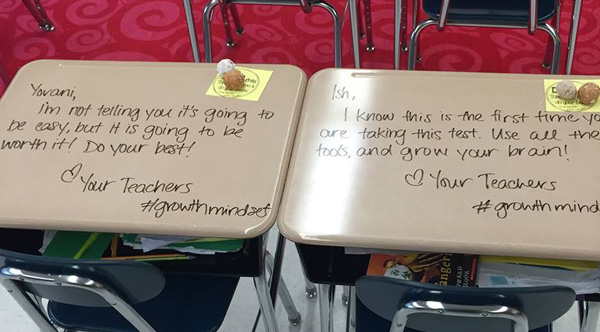 Yovani,
I'm not telling you it's going to
be easy, but it is going to be
worth it! Do your best!
♡ Your Teachers
#growthmindset
Ish,
I know this is the first time yo
are taking this test. Use all the
tools, and grow your brain!
♡ Your Teachers
#growthmind